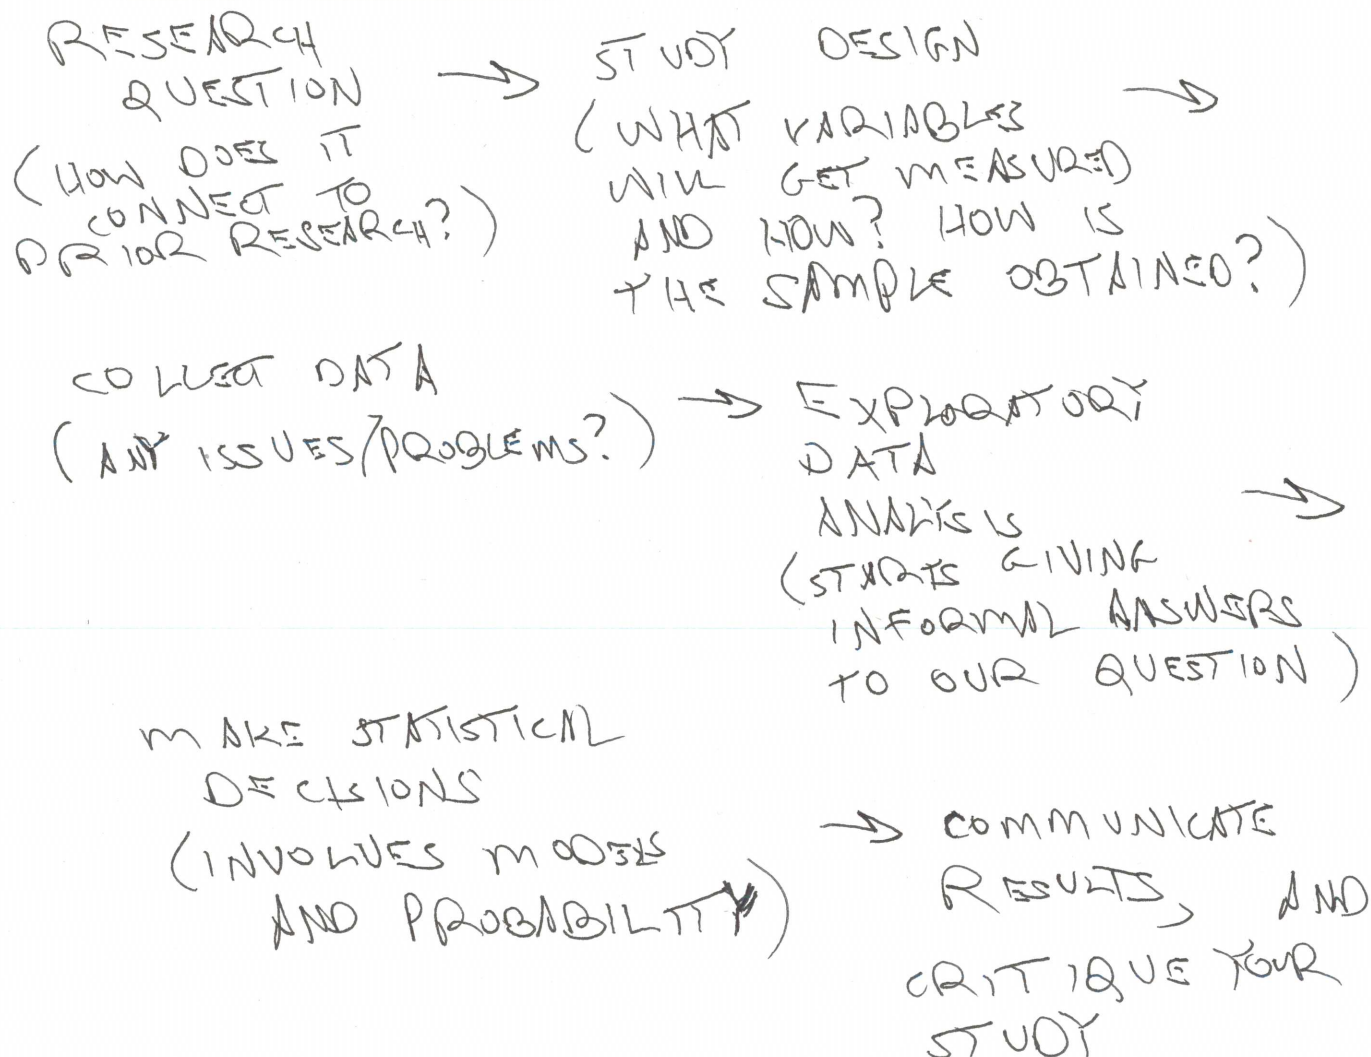 RESEARCH
QUESTION
(HOW DOES IT
CONNECT TO
PRIOR RESEARCH?)
→ STUDY DESIGN
(WHAT VARIABLES
WILL GET MEASURED
AND HOW? HOW IS
THE SAMPLE OBTAINED?)
→
COLLECT DATA
(ANY ISSUES/PROBLEMS?)
→ EXPLORATORY
DATA
ANALYSIS
(STARTS GIVING
INFORMAL ANSWERS
TO OUR QUESTION)
→
MAKE STATISTICAL
DECISIONS
(INVOLVES MODELS
AND PROBABILITY)
→ COMMUNICATE
RESULTS, AND
CRITIQUE YOUR
STUDY